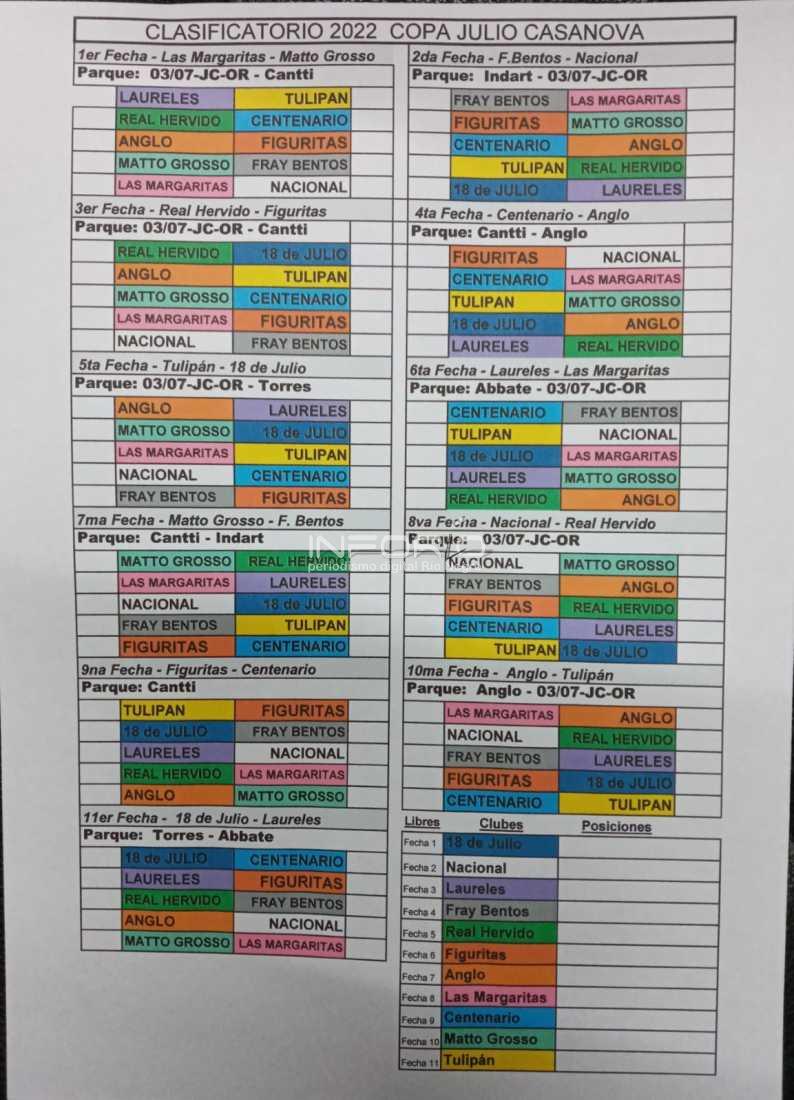 CLASIFICATORIO 2022 COPA JULIO CASANOVA
1er Fecha - Las Margaritas - Matto Grosso
Parque: 03/07-JC-OR - Cantti
LAURELES TULIPAN
REAL HERVIDO CENTENARIO
ANGLO FIGURITAS
MATTO GROSSO FRAY BENTOS
LAS MARGARITAS NACIONAL
2da Fecha - F.Bentos - Nacional
Parque: Indart - 03/07-JC-OR
FRAY BENTOS LAS MARGARITAS
FIGURITAS MATTO GROSSO
CENTENARIO ANGLO
TULIPAN REAL HERVIDO
18 de JULIO LAURELES
3er Fecha - Real Hervido - Figuritas
Parque: 03/07-JC-OR - Cantti
REAL HERVIDO 18 de JULIO
ANGLO TULIPAN
MATTO GROSSO CENTENARIO
LAS MARGARITAS FIGURITAS
NACIONAL FRAY BENTOS
4ta Fecha - Centenario - Anglo
Parque: Cantti - Anglo
FIGURITAS NACIONAL
CENTENARIO LAS MARGARITAS
TULIPAN MATTO GROSSO
18 de JULIO ANGLO
LAURELES REAL HERVIDO
5ta Fecha - Tulipán - 18 de Julio
Parque: 03/07-JC-OR - Torres
ANGLO LAURELES
MATTO GROSSO 18 de JULIO
LAS MARGARITAS TULIPAN
NACIONAL CENTENARIO
FRAY BENTOS FIGURITAS
6ta Fecha - Laureles - Las Margaritas
Parque: Abbate - 03/07-JC-OR
CENTENARIO FRAY BENTOS
TULIPAN NACIONAL
18 de JULIO LAS MARGARITAS
LAURELES MATTO GROSSO
REAL HERVIDO ANGLO
7ma Fecha - Matto Grosso - F. Bentos
Parque: Cantti - Indart
MATTO GROSSO REAL HERVIDO
LAS MARGARITAS LAURELES
NACIONAL 18 de JULIO
FRAY BENTOS TULIPAN
FIGURITAS CENTENARIO
8va Fecha - Nacional - Real Hervido
Parque: 03/07-JC-OR
NACIONAL MATTO GROSSO
FRAY BENTOS ANGLO
FIGURITAS REAL HERVIDO
CENTENARIO LAURELES
TULIPAN 18 de JULIO
INFORÍO
periodismo digital Río
9na Fecha - Figuritas - Centenario
Parque: Cantti
TULIPAN FIGURITAS
18 de JULIO FRAY BENTOS
LAURELES NACIONAL
REAL HERVIDO LAS MARGARITAS
ANGLO MATTO GROSSO
10ma Fecha - Anglo - Tulipán
Parque: Anglo - 03/07-JC-OR
LAS MARGARITAS ANGLO
NACIONAL REAL HERVIDO
FRAY BENTOS LAURELES
FIGURITAS 18 de JULIO
CENTENARIO TULIPAN
11er Fecha - 18 de Julio - Laureles
Parque: Torres - Abbate
18 de JULIO CENTENARIO
LAURELES FIGURITAS
REAL HERVIDO FRAY BENTOS
ANGLO NACIONAL
MATTO GROSSO LAS MARGARITAS
Libres Clubes Posiciones
Fecha 1 18 de Julio
Fecha 2 Nacional
Fecha 3 Laureles
Fecha 4 Fray Bentos
Fecha 5 Real Hervido
Fecha 6 Figuritas
Fecha 7 Anglo
Fecha 8 Las Margaritas
Fecha 9 Centenario
Fecha 10 Matto Grosso
Fecha 11 Tulipán